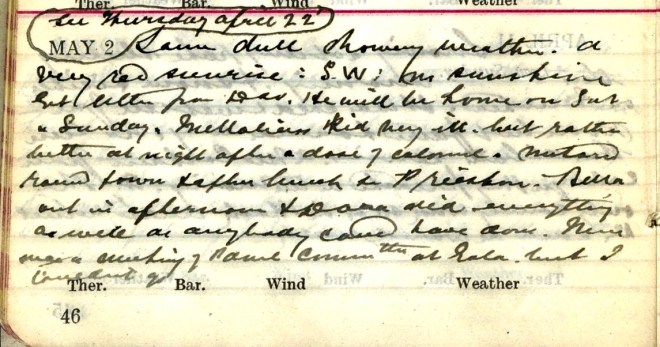 Ther. Bar. Wind Weather
See Thursday april 22
MAY 2 Same dull showery weather. a
very red sunrise : S.W: no sunshine
Got letter from Dav. He will be home on Sat
& Sunday. kid very ill. but rather
better at night after a dose of calomel. Motored
round town & after lunch to Bella
out in afternoon & Dora did everything
as well as anybody could have done. There
was a meeting of Committee at but I
couldn't go
Ther. Bar. Wind Weather
46